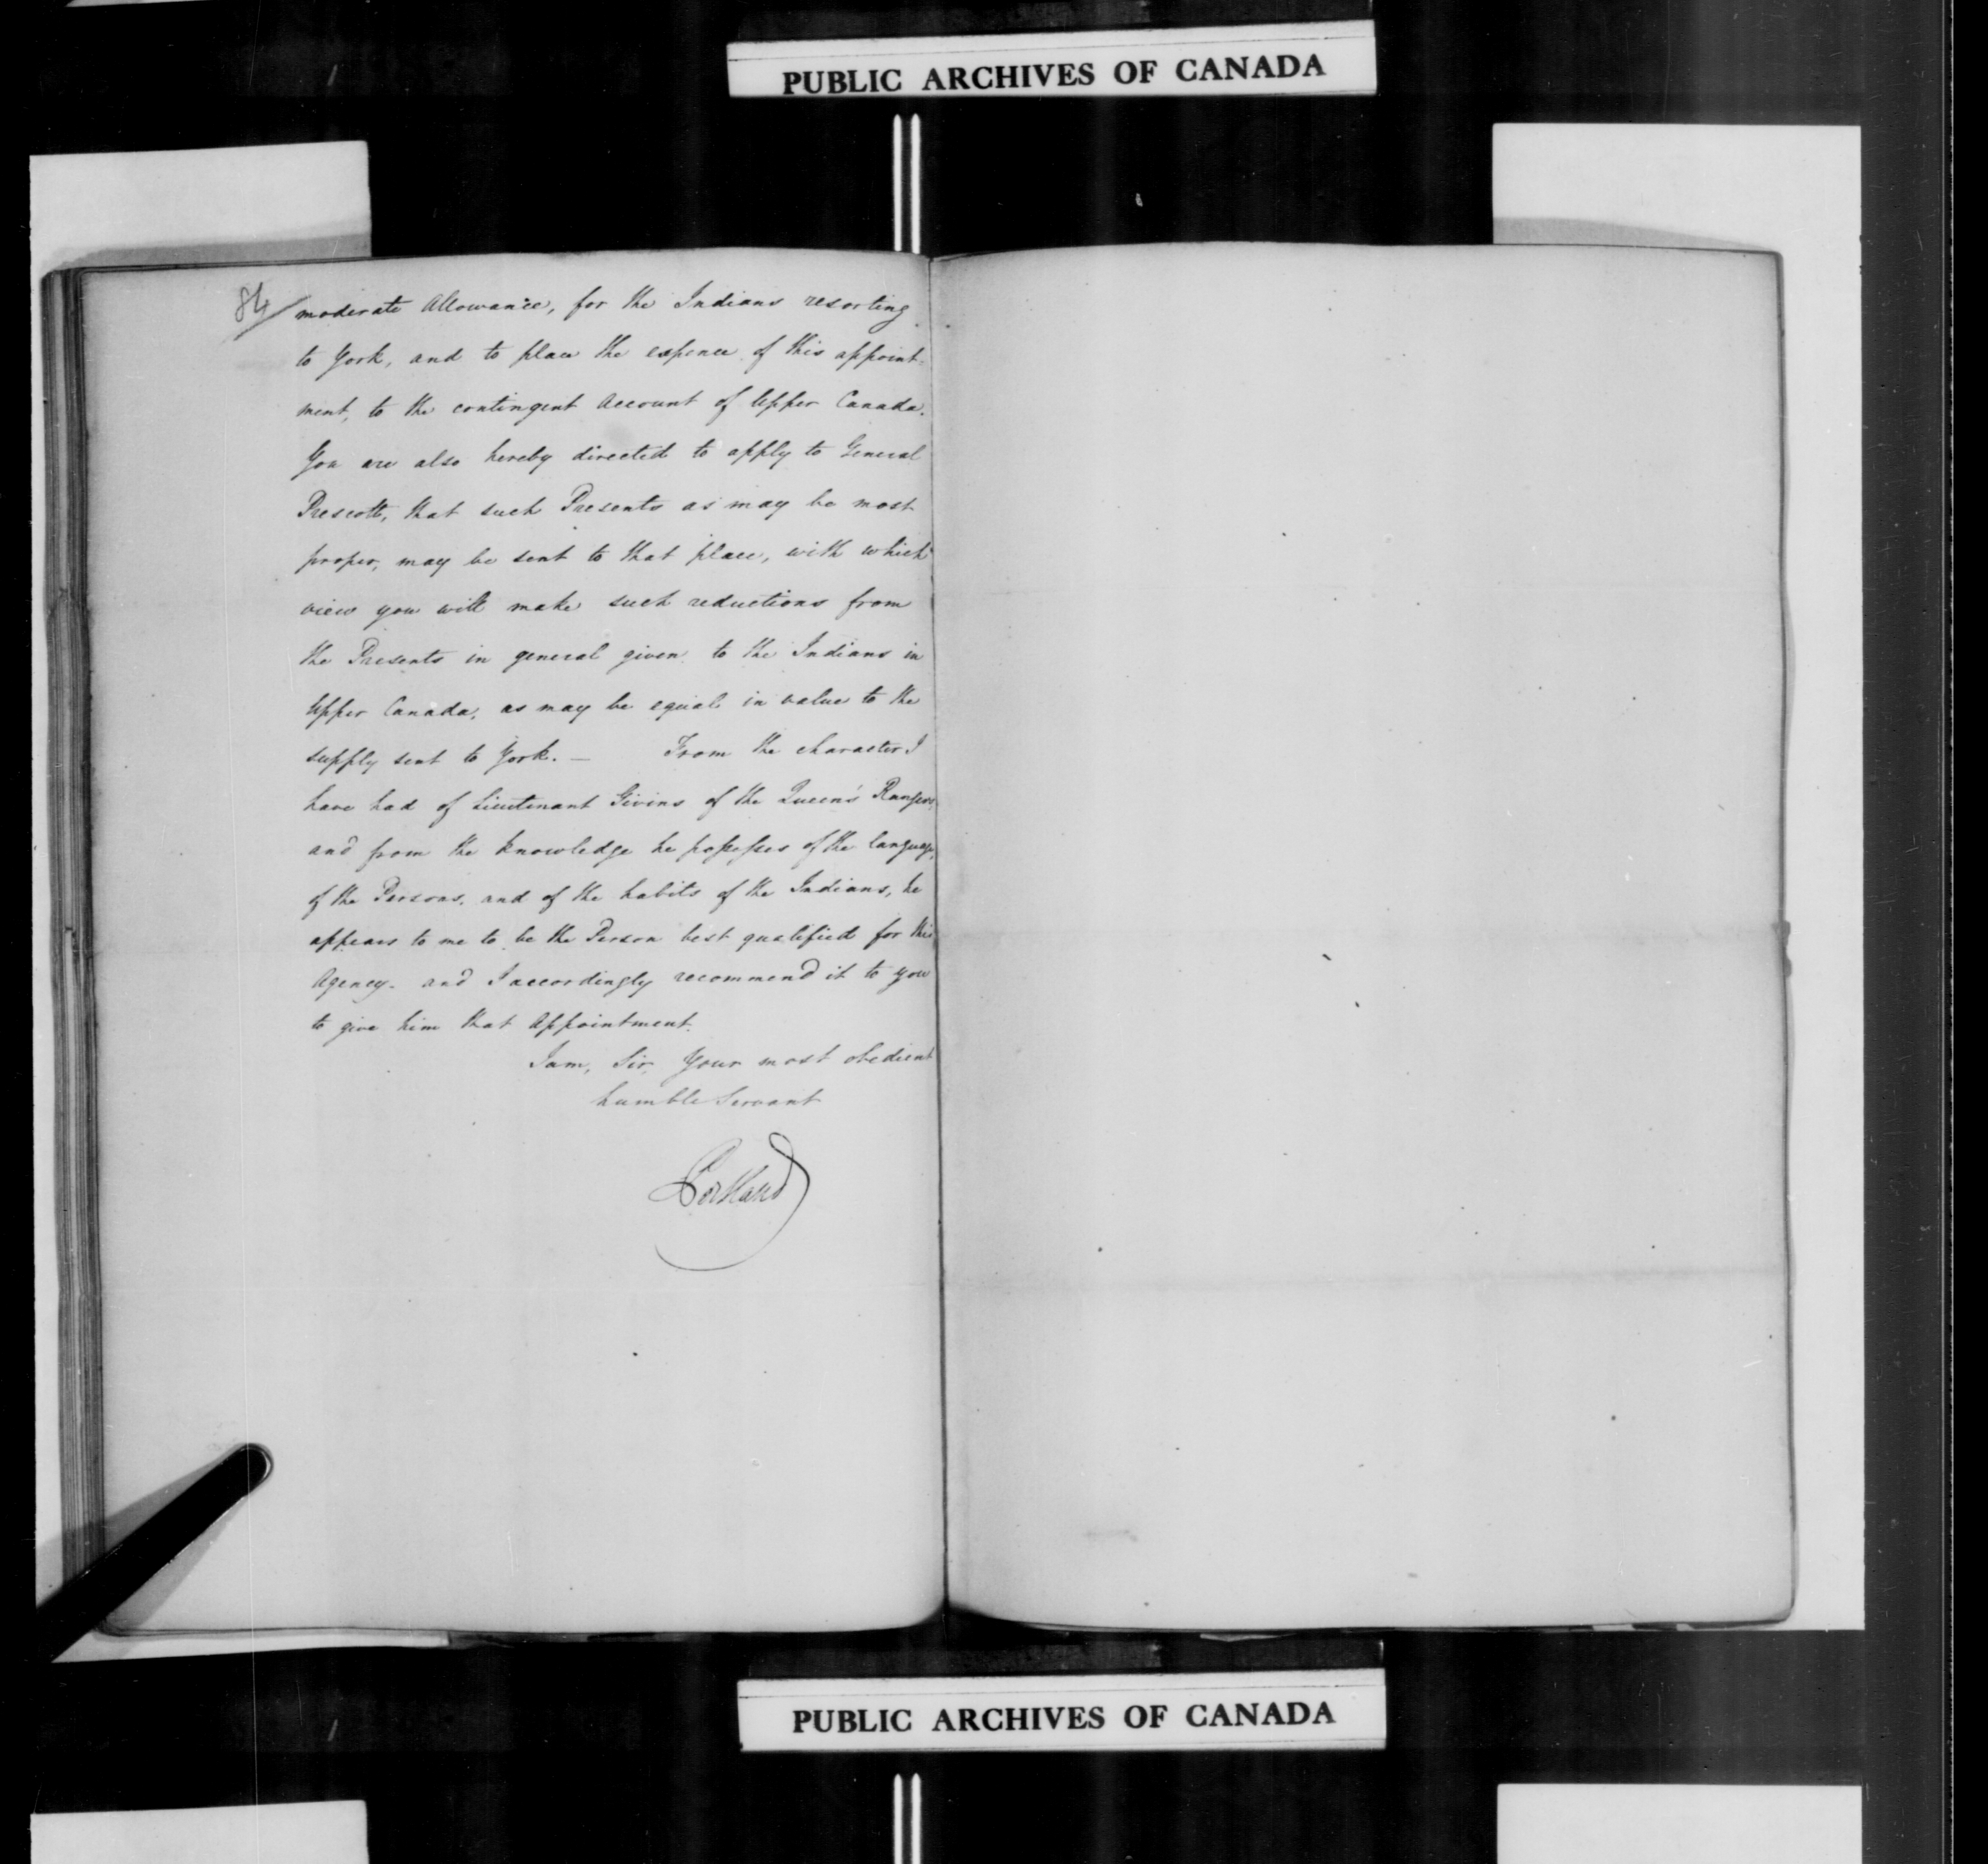 PUBLIC ARCHIVES OF CANADA
84
moderate Allowance, for the Indians resorting
to York, and to place the expence of this appoint-
ment, to the contingent Account of Upper Canada.
You are also hereby directed to apply to General
Prescott, that such Presents as may be most
proper, may be sent to that place, with which
view you will make such reductions from
the Presents in general given to the Indians in
Upper Canada, as may be equal in value to the
supply sent to York. — From the character I
have had of Lieutenant Givins of the Queen's Rangers,
and from the knowledge he possesses of the language,
of the Persons, and of the habits of the Indians, he
appears to me to be the Person best qualified for this
Agency. and I accordingly recommend it to you
to give him that Appointment.
I am, Sir, Your most obedient
humble Servant
Portland
PUBLIC ARCHIVES OF CANADA